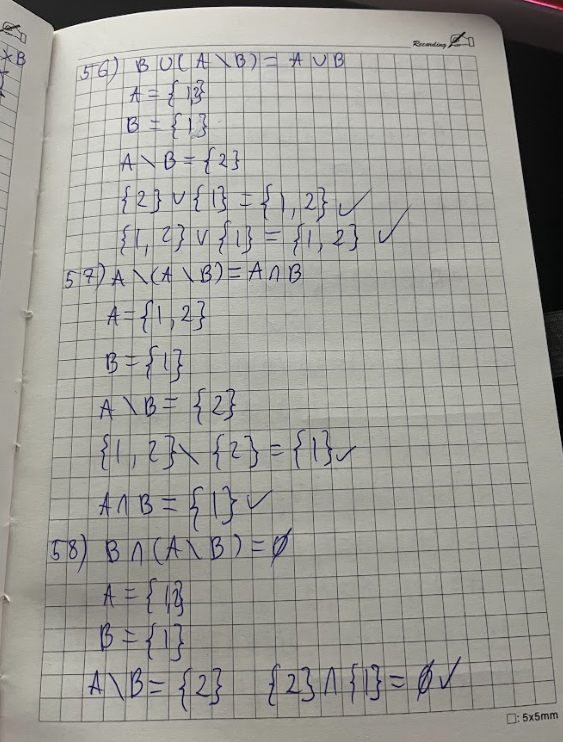 Recording
xB
56) B ∪ (A \ B) = A ∪ B
A = {12}
B = {1}
A \ B = {2}
{2} ∪ {1} = {1, 2} ✓
{1, 2} ∪ {1} = {1, 2} ✓
57) A \ (A \ B) = A ∩ B
A = {1, 2}
B = {1}
A \ B = {2}
{1, 2} \ {2} = {1} ✓
A ∩ B = {1} ✓
58) B ∩ (A \ B) = ∅
A = {12}
B = {1}
A \ B = {2} {2} ∩ {1} = ∅ ✓
□: 5x5mm